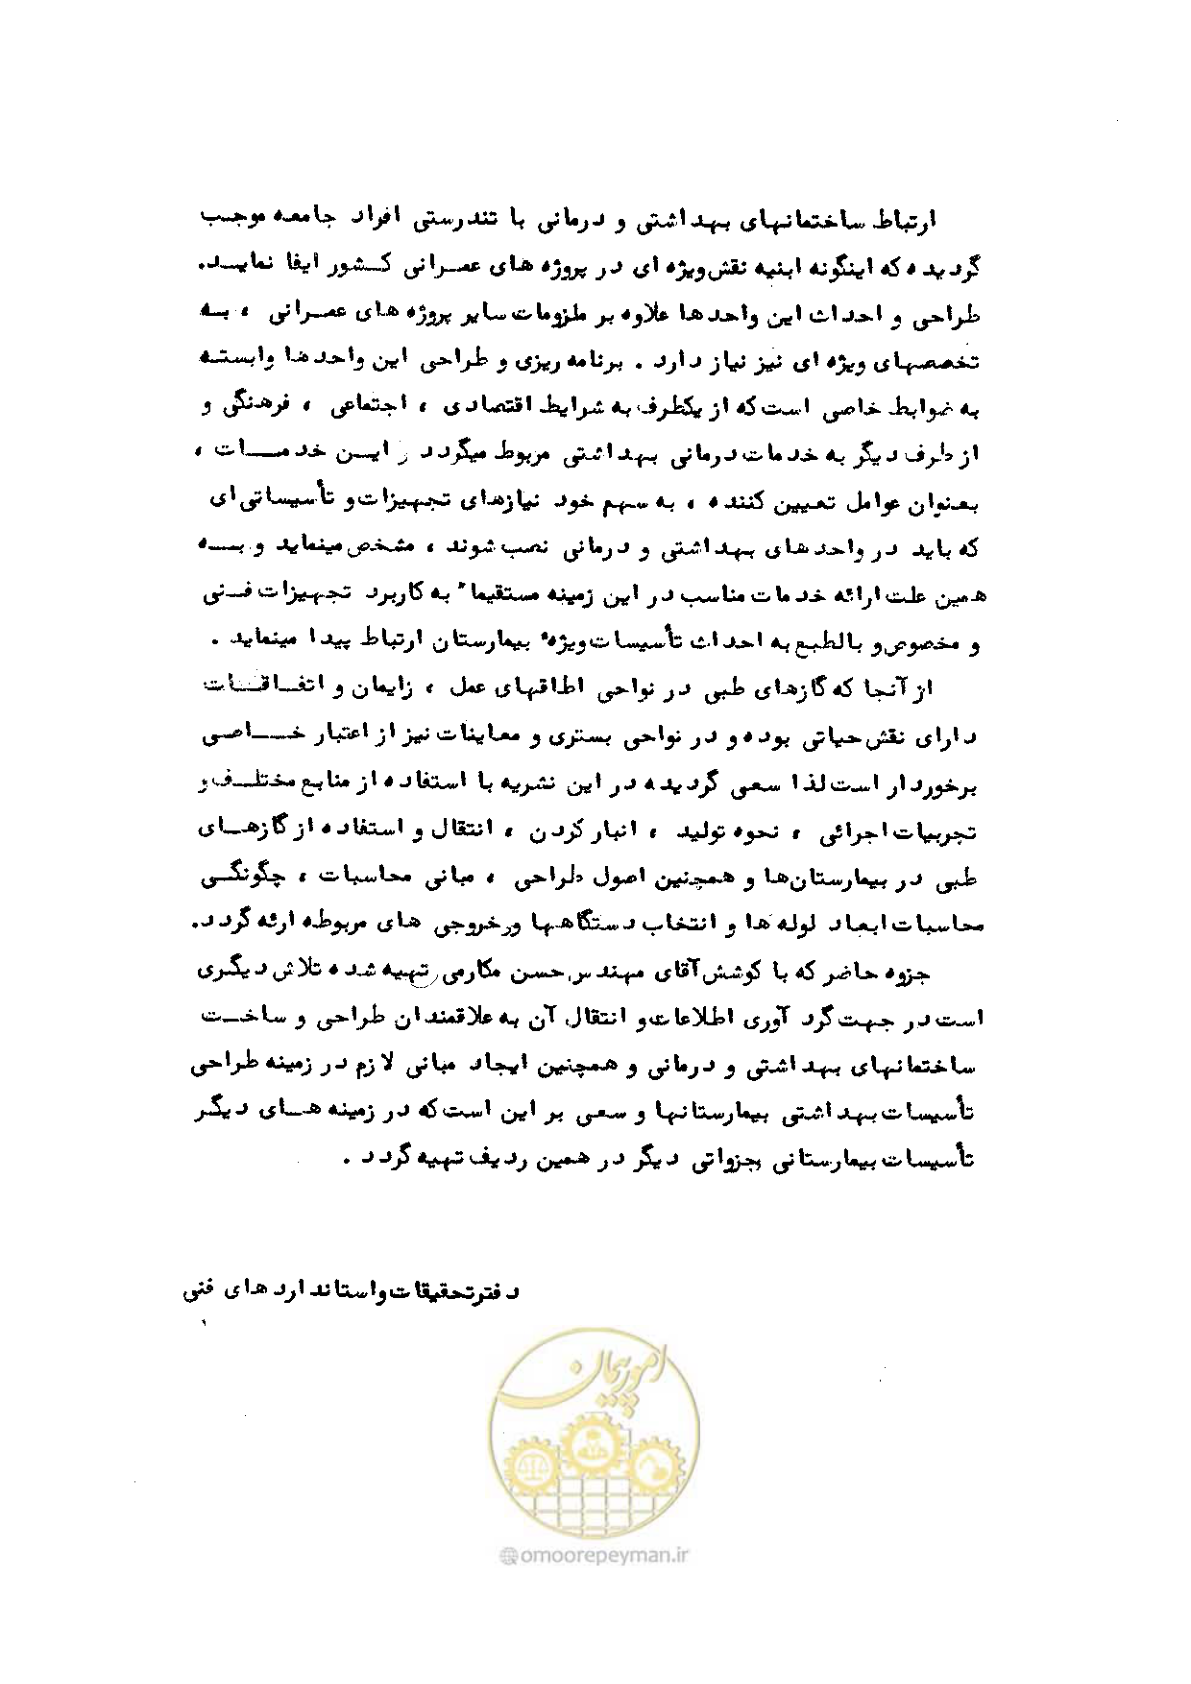 ارتباط ساختمانهای بهداشتی و درمانی با تندرستی افراد جامعه موجب
گردیده که اینگونه ابنیه نقش ویژه ای در پروژه های عمرانی کشور ایفا نماید.
طراحی و احداث این واحدها علاوه بر ملزومات سایر پروژه های عمرانی ، به
تخصصهای ویژه ای نیز نیاز دارد . برنامه ریزی و طراحی این واحدها وابسته
به ضوابط خاصی است که از یکطرف به شرایط اقتصادی ، اجتماعی ، فرهنگی و
از طرف دیگر به خدمات درمانی بهداشتی مربوط میگردد . این خدمات ،
بعنوان عوامل تعیین کننده ، به سهم خود نیازهای تجهیزات و تأسیساتی ای
که باید در واحدهای بهداشتی و درمانی نصب شوند ، مشخص مینماید و به
همین علت ارائه خدمات مناسب در این زمینه مستقیما" به کاربرد تجهیزات فنی
و مخصوص و بالطبع به احداث تأسیسات ویژه بیمارستان ارتباط پیدا مینماید .
از آنجا که گازهای طبی در نواحی اطاقهای عمل ، زایمان و اتفاقات
دارای نقش حیاتی بوده و در نواحی بستری و معاینات نیز از اعتبار خاصی
برخوردار است لذا سعی گردیده در این نشریه با استفاده از منابع مختلف و
تجربیات اجرائی ، نحوه تولید ، انبار کردن ، انتقال و استفاده از گازهای
طبی در بیمارستان‌ها و همچنین اصول طراحی ، مبانی محاسبات ، چگونگی
محاسبات ابعاد لوله ها و انتخاب دستگاهها و خروجی های مربوطه ارئه گردد.
جزوه حاضر که با کوشش آقای مهندس حسن مکارمی تهیه شده تلاش دیگری
است در جهت گرد آوری اطلاعات و انتقال آن به علاقمندان طراحی و ساخت
ساختمانهای بهداشتی و درمانی و همچنین ایجاد مبانی لازم در زمینه طراحی
تأسیسات بهداشتی بیمارستانها و سعی بر این است که در زمینه های دیگر
تأسیسات بیمارستانی جزواتی دیگر در همین ردیف تهیه گردد .
دفتر تحقیقات و استانداردهای فنی
۱
امور پیمان
@omoorepeyman.ir